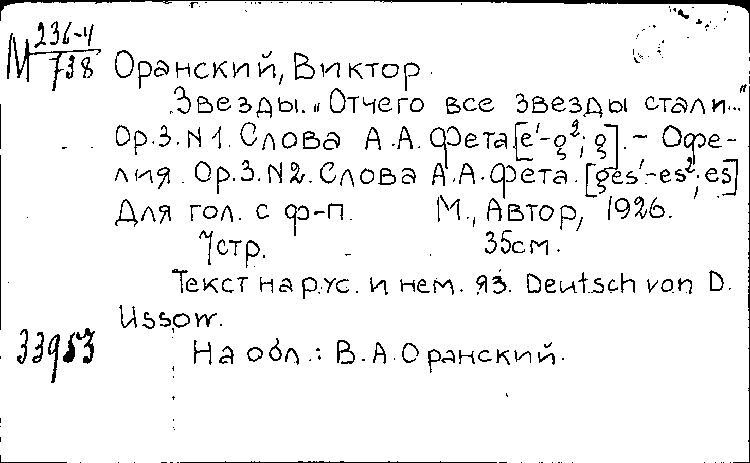 М 236-4
738
Оранский, Виктор.
Звезды. "Отчего все звезды стали..."
Ор.3. N1. Слова А.А. Фета [e'-g²; g]. - Офе-
лия. Ор.3. N2. Слова А.А. Фета. [ges'-es²; es]
Для гол. с ф-п. М., Автор, 1926.
7 стр. 35 см.
Текст на рус. и нем. яз. Deutsch von D.
Ussow.
33953
На обл.: В.А. Оранский.